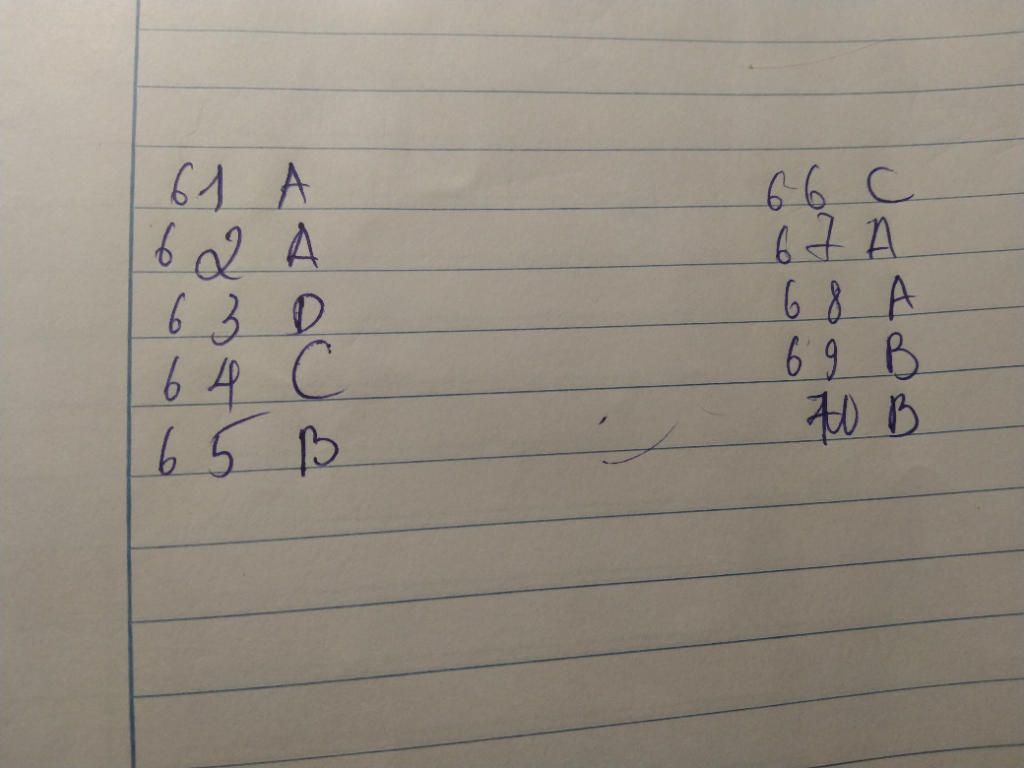 61 A
62 A
63 D
64 C
65 B
66 C
67 A
68 A
69 B
70 B